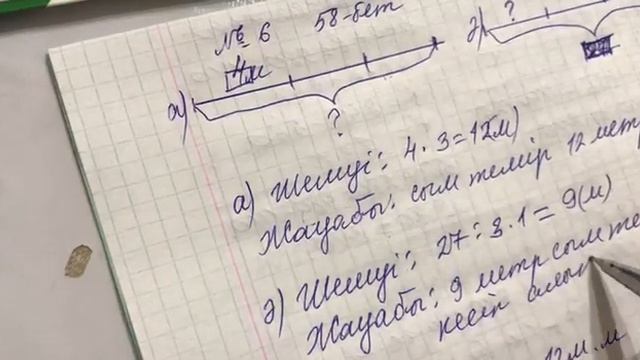 № 6 58-бет
4м
а)
?
ә) ?
а) Шешуі: 4 · 3 = 12(м)
Жауабы: сым темір 12 метр
ә) Шешуі: 27 : 3 · 1 = 9(м)
Жауабы: 9 метр сым те
кесіп алып
12 м. м